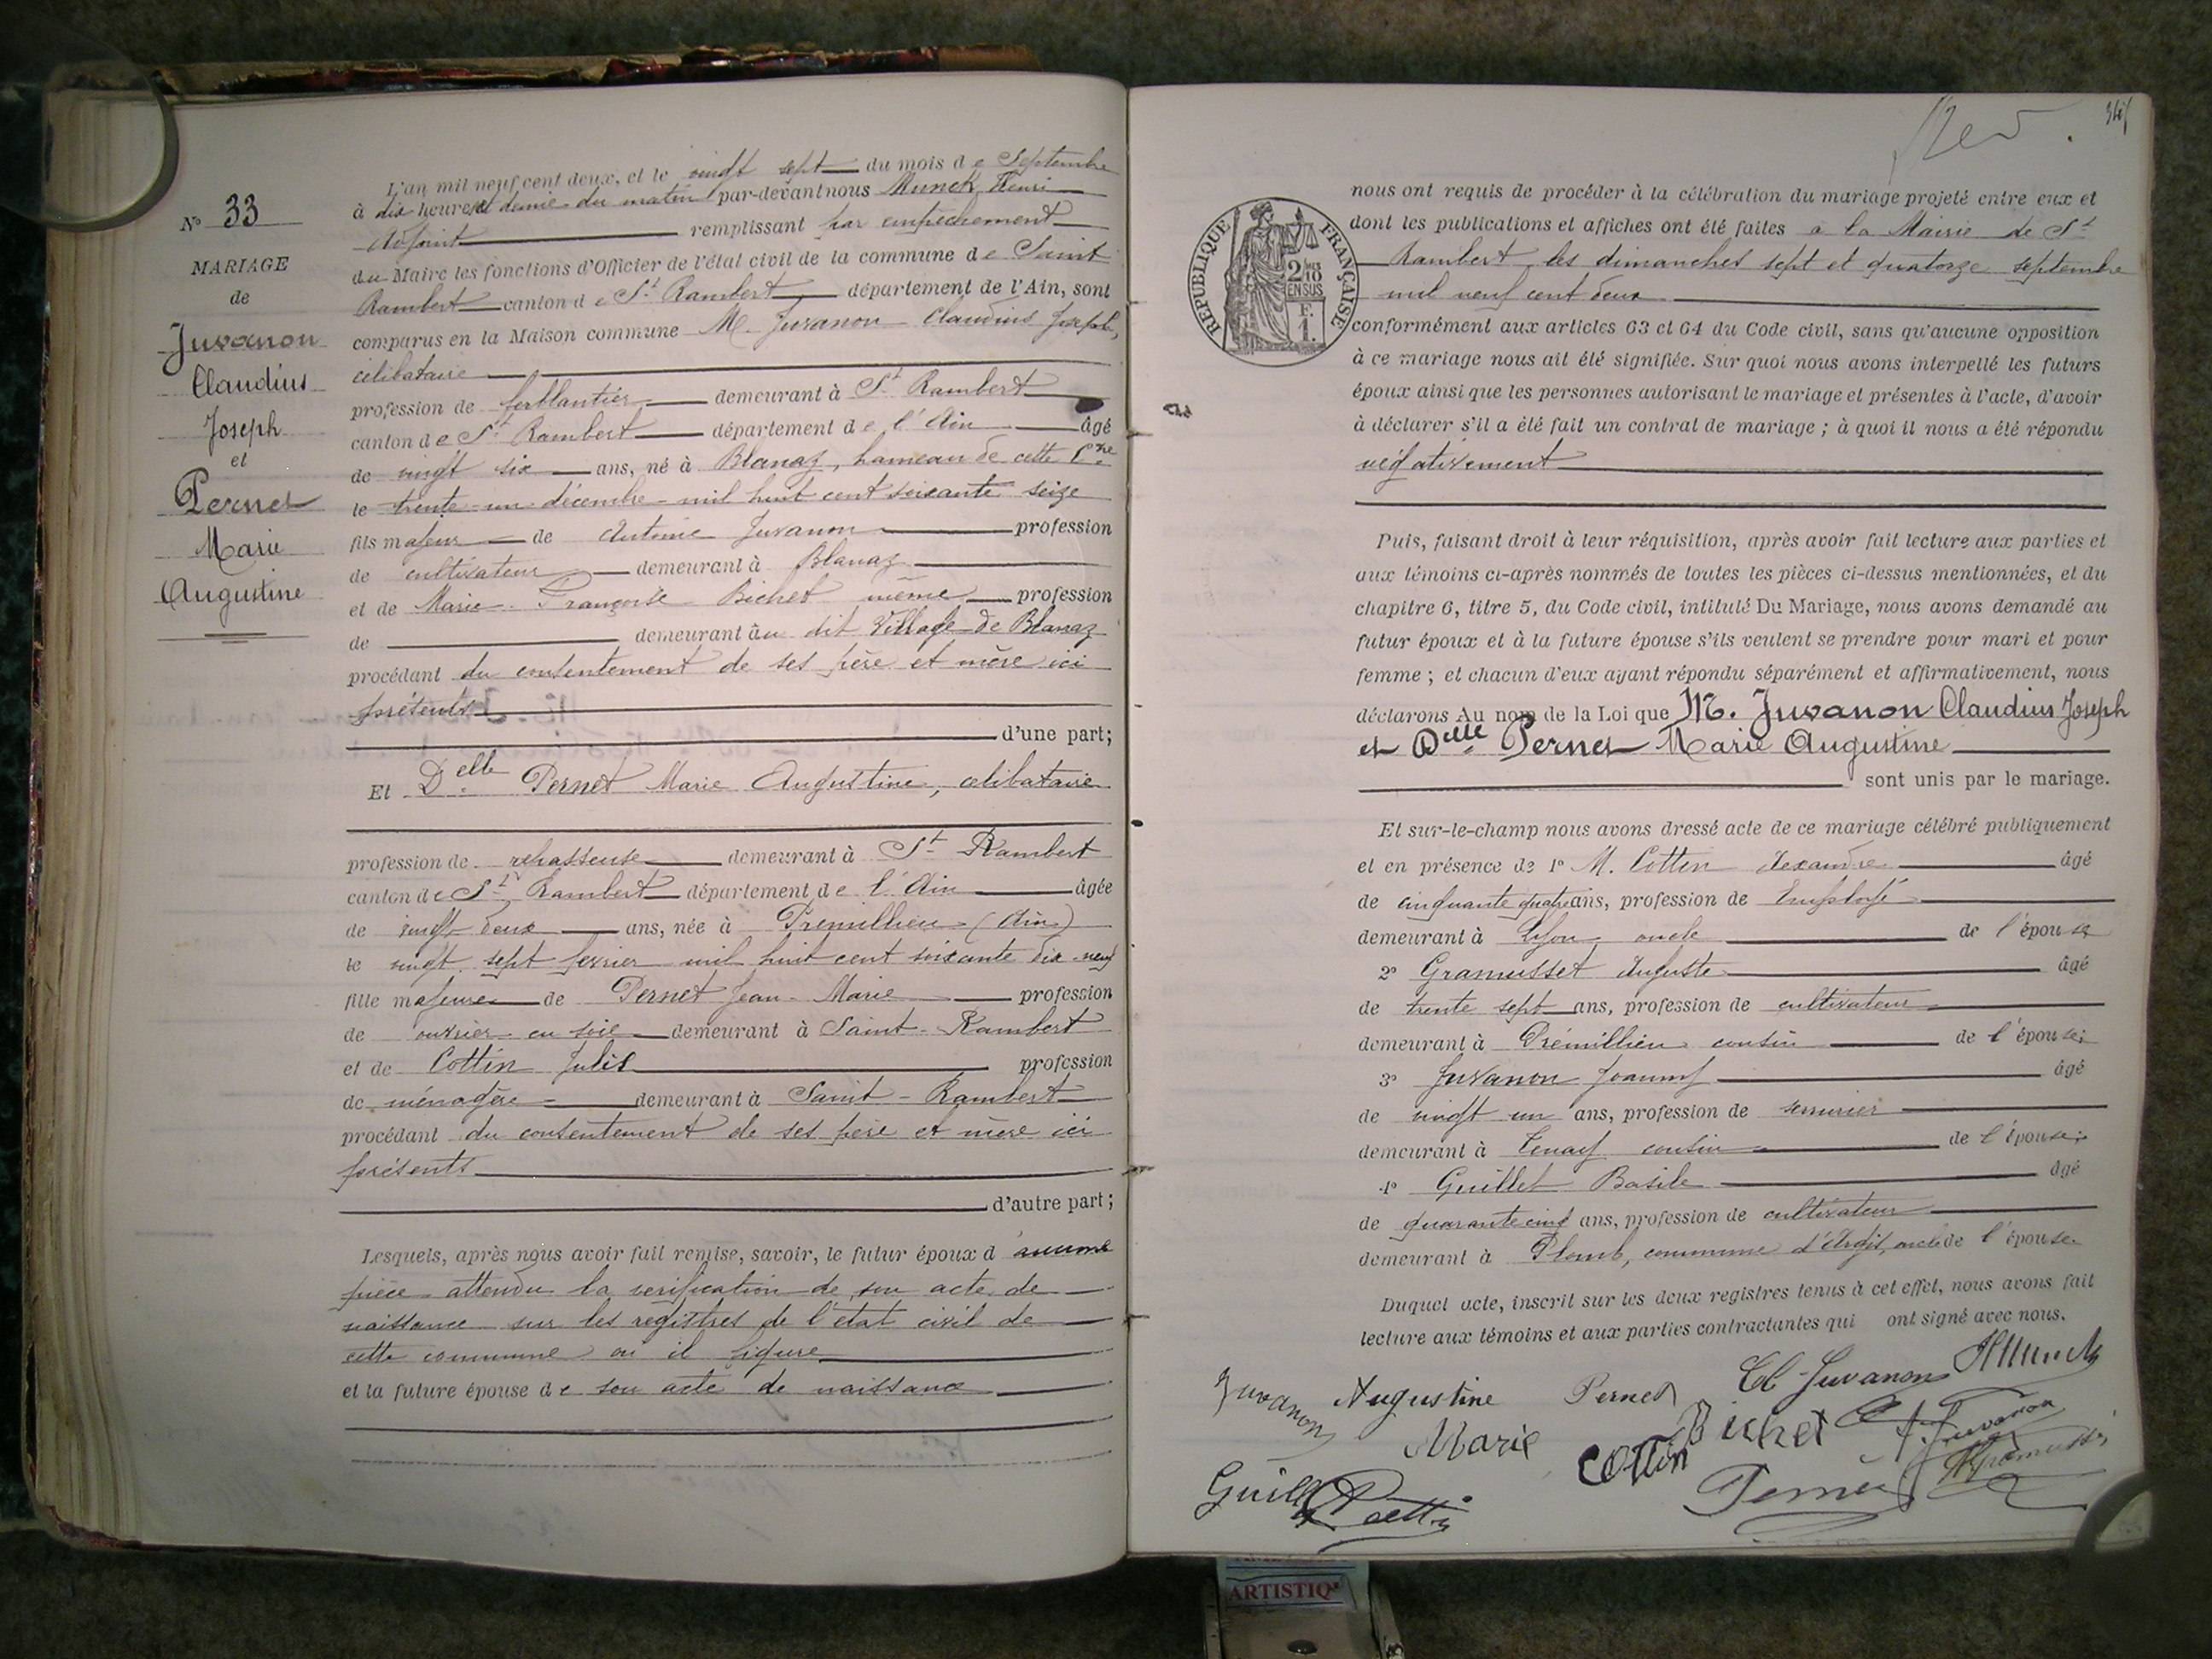 N° 33
MARIAGE
de
Juvanon
Claudius
Joseph
et
Pernet
Marie
Augustine
L'an mil neuf cent deux, et le vingt sept du mois de Septembre
à dix heures et demie du matin par-devant nous Munck Henri
Adjoint remplissant par empêchement
du Maire les fonctions d'Officier de l'état civil de la commune de Saint
Rambert canton de St Rambert département de l'Ain, sont
comparus en la Maison commune M. Juvanon Claudius Joseph,
célibataire
profession de ferblantier demeurant à St Rambert
canton de St Rambert département de l'Ain âgé
de vingt six ans, né à Blanaz, hameau de cette Cne
le trente-un décembre mil huit cent soixante seize
fils majeur de Antoine Juvanon profession
de cultivateur demeurant à Blanaz
et de Marie-Françoise Bichet même profession
de demeurant au dit Village de Blanaz
procédant du consentement de ses père et mère ici
présents
d'une part;
Et Delle Pernet Marie Augustine, célibataire
profession de demeurant à St Rambert
canton de St Rambert département de l'Ain âgée
de vingt deux ans, née à Prémillieu (Ain)
le vingt sept février mil huit cent soixante dix-neuf
fille majeure de Pernet Jean-Marie profession
de ouvrier en soie demeurant à Saint-Rambert
et de Cottin Julie profession
de ménagère demeurant à Saint-Rambert
procédant du consentement de ses père et mère ici
présents
d'autre part;
Lesquels, après nous avoir fait remise, savoir, le futur époux d'aucune
pièce attendu la vérification de son acte de
naissance sur les registres de l'état civil de
cette commune où il figure
et la future épouse de son acte de naissance
341
RÉPUBLIQUE FRANÇAISE
2/10
EN SUS
F.
1.
nous ont requis de procéder à la célébration du mariage projeté entre eux et
dont les publications et affiches ont été faites à la Mairie de St
Rambert les dimanches sept et quatorze septembre
mil neuf cent deux
conformément aux articles 63 et 64 du Code civil, sans qu'aucune opposition
à ce mariage nous ait été signifiée. Sur quoi nous avons interpellé les futurs
époux ainsi que les personnes autorisant le mariage et présentes à l'acte, d'avoir
à déclarer s'il a été fait un contrat de mariage; à quoi il nous a été répondu
négativement
Puis, faisant droit à leur réquisition, après avoir fait lecture aux parties et
aux témoins ci-après nommés de toutes les pièces ci-dessus mentionnées, et du
chapitre 6, titre 5, du Code civil, intitulé Du Mariage, nous avons demandé au
futur époux et à la future épouse s'ils veulent se prendre pour mari et pour
femme; et chacun d'eux ayant répondu séparément et affirmativement, nous
déclarons Au nom de la Loi que M. Juvanon Claudius Joseph
et Delle Pernet Marie Augustine
sont unis par le mariage.
Et sur-le-champ nous avons dressé acte de ce mariage célébré publiquement
et en présence de 1° M. Cottin Alexandre âgé
de cinquante quatre ans, profession de Employé
demeurant à Lyon oncle de l'épouse
2° Gramusset Auguste âgé
de trente sept ans, profession de cultivateur
demeurant à Prémillieu cousin de l'épouse;
3° Juvanon Joanny âgé
de vingt un ans, profession de serrurier
demeurant à Tenay cousin de l'épouse;
4° Guillet Basile âgé
de quarante cinq ans, profession de cultivateur
demeurant à Plomb, commune d'Argis, oncle de l'épouse
Duquel acte, inscrit sur les deux registres tenus à cet effet, nous avons fait
lecture aux témoins et aux parties contractantes qui ont signé avec nous.
Juvanon Augustine Pernet Cl Juvanon HMunck
Marie Cottin Bichet Juvanon
Guillet Cottin Pernet Gramusset
ARTISTIQ